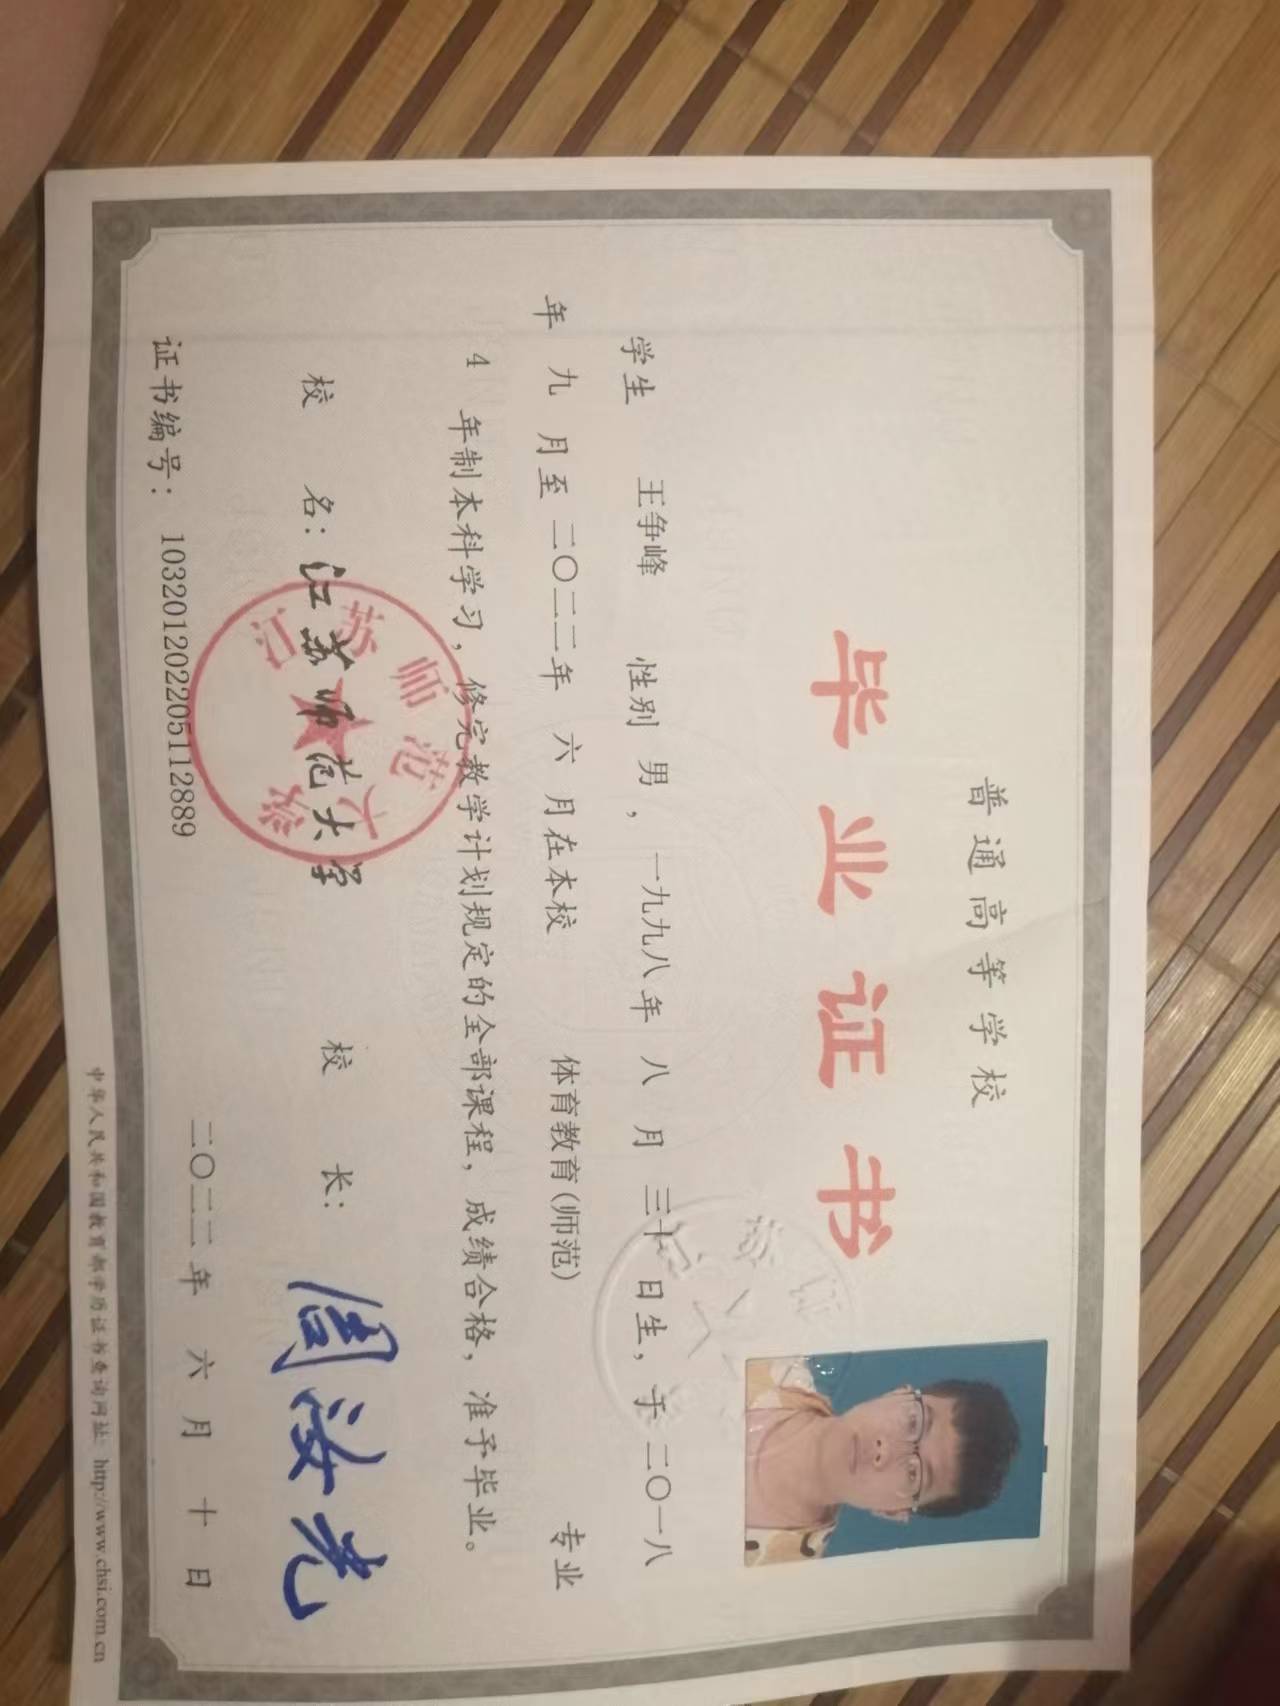 普通高等学校
毕业证书
学生 王争峰 性别 男，一九九八年 八 月 三十 日生，于二〇一八
年 九 月至 二〇二二年 六 月在本校 体育教育(师范) 专业
4 年制本科学习，修完教学计划规定的全部课程，成绩合格，准予毕业。
校 名：江苏师范大学 校 长：周汝光
江苏师范大学
证书编号：103201202205112889 二〇二二年 六 月 十 日
中华人民共和国教育部学历证书查询网址：http://www.chsi.com.cn